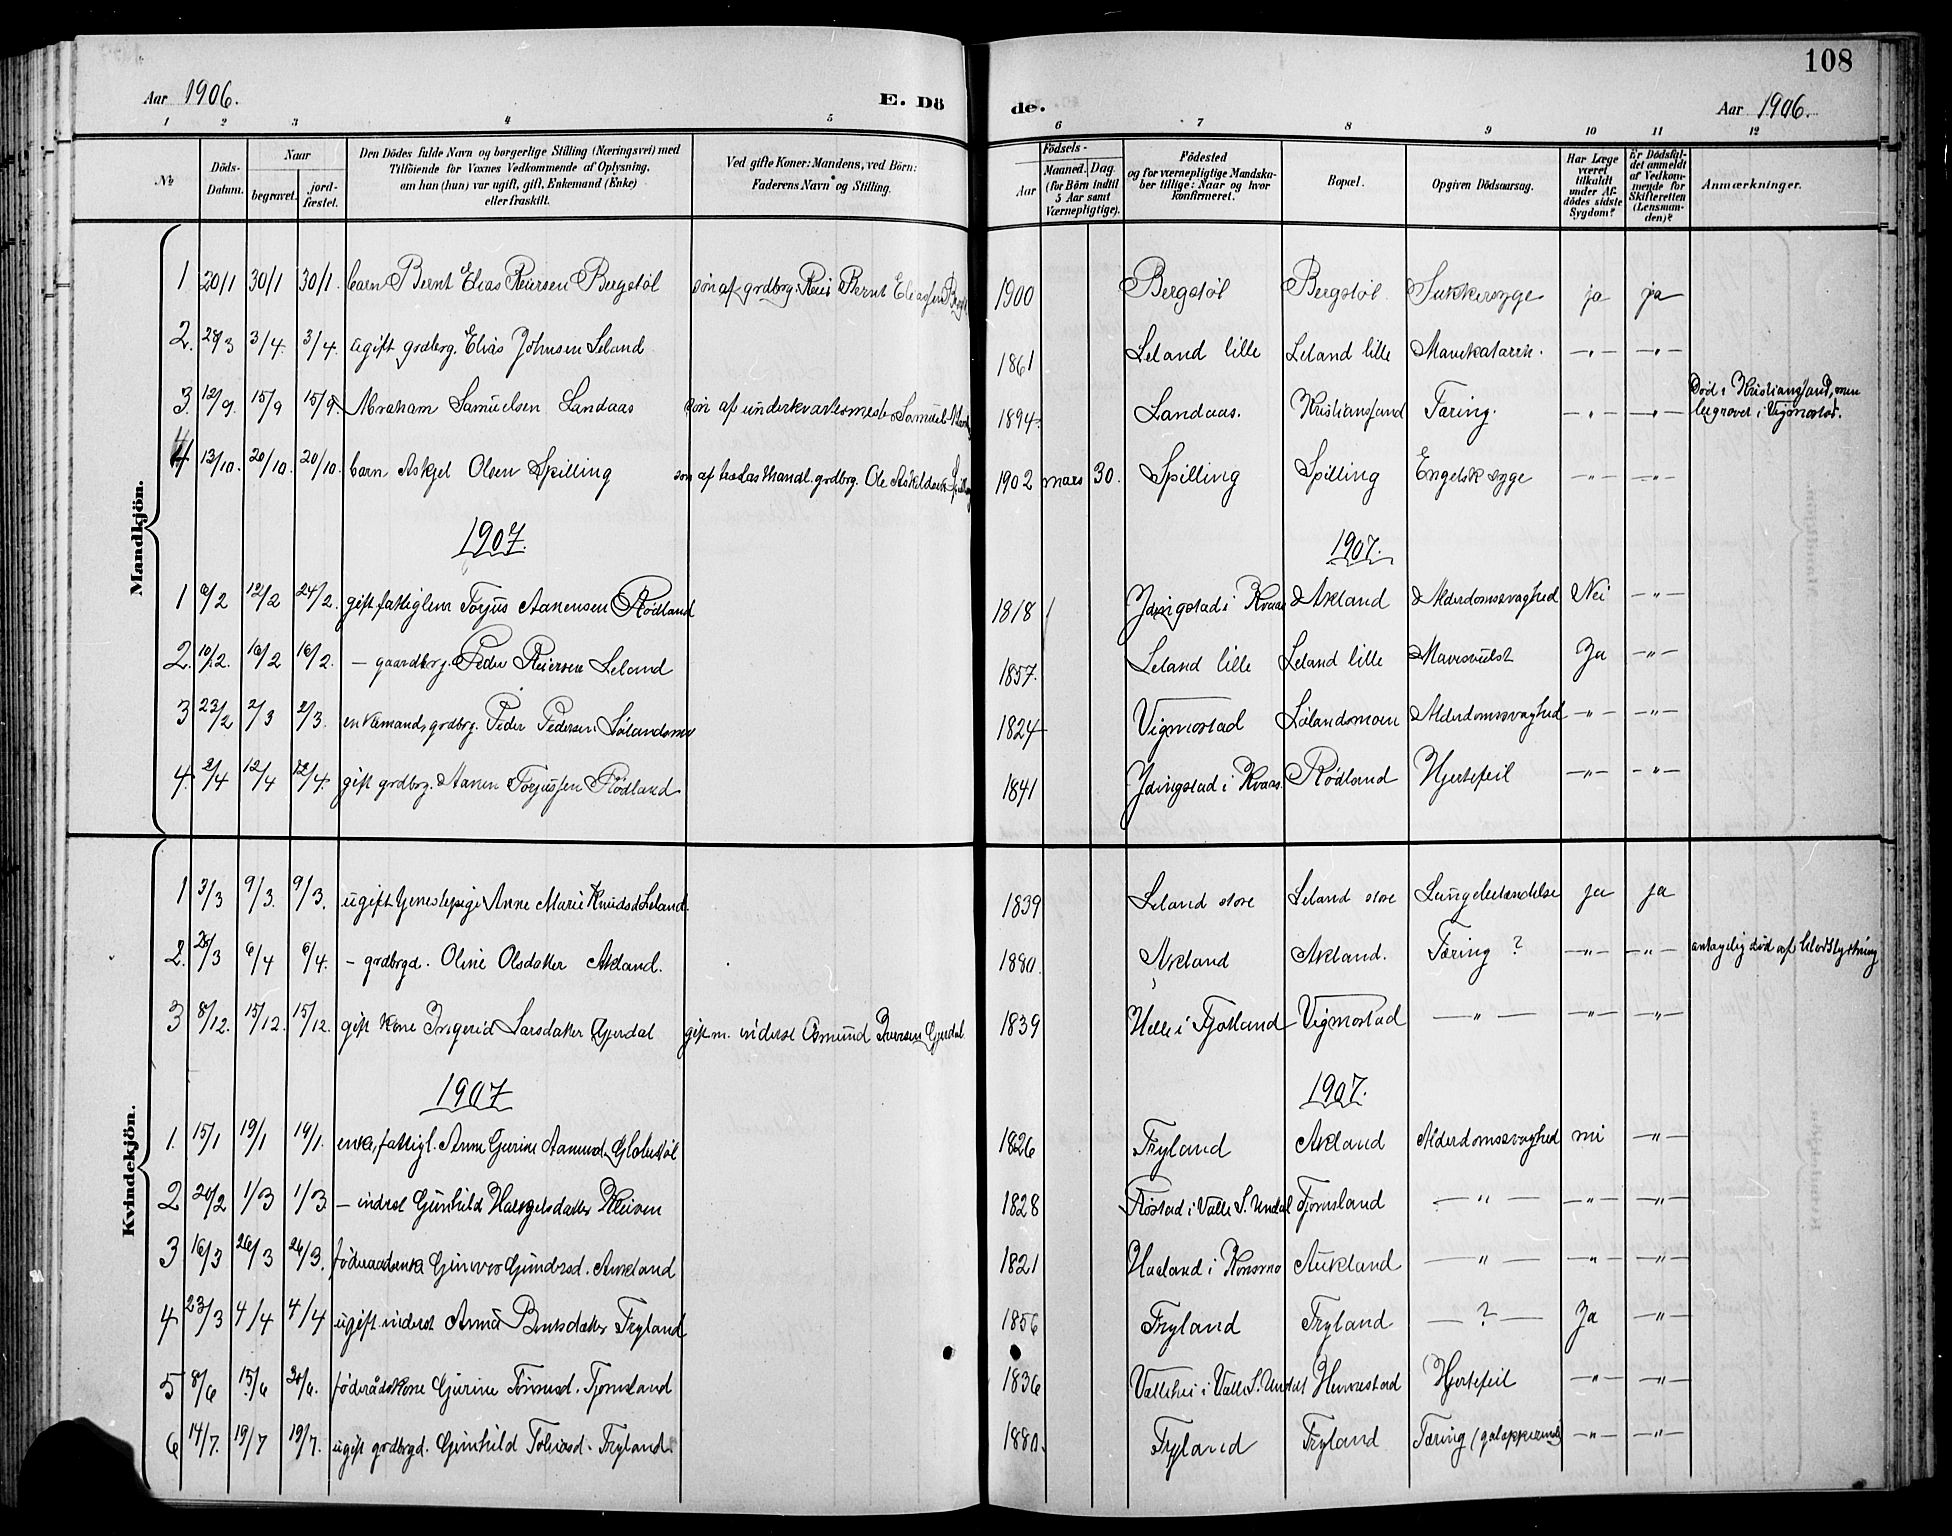 108
Aar 1906. E. Dö de. Aar 1906.
1 2 3 4 5 6 7 8 9 10 11 12
№ Döds-Datum. Naar begravet. jord-fæstet. Den Dödes fulde Navn og borgerlige Stilling (Næringsvei) med Tilföiende for Voxnes Vedkommende af Oplysning, om han (hun) var ugift, gift, Enkemand (Enke) eller fraskilt. Ved gifte Koner: Mandens, ved Börn: Faderens Navn og Stilling. Födsels- Aar Maaned. Dag. (for Börn indtil 5 Aar samt Værnepligtige). Födested og for værnepligtige Mandskaber tillige: Naar og hvor konfirmeret. Bopæl. Opgiven Dödsaarsag. Har Læge været tilkaldt under Afdödes sidste Sygdom? Er Dödsfaldet anmeldt af Vedkommende for Skifteretten (Lensmanden)? Anmærkninger.
Mandkjön.
1 20/1 30/1 30/1 barn Bernt Elias Reiersen Bergstöl søn af grdbrg. Reier Bernt Eliassen 1900 Bergstöl Bergstöl Sukkersyge ja ja
2. 28/3 3/4. 3/4. ugift grdbrg. Elias Johnsen Leland 1861 Leland lille Leland lille Mavekatarrh. —„— —„—
3. 12/9. 15/9 15/9 Abraham Samuelsen Landaas søn af underkvartermester Samuel 1894 Landaas. Kristianssand Tæring. —„— —„— Död i Kristianssand, men begravet i Vigmostad.
4 13/10. 20/10. 20/10. barn Askjel Olsen Spilling søn af grdbrg. Ole Askildsen Spilling 1902 mars 30. Spilling Spilling Engelsk syge —„— —„—
1907. 1907.
1 6/2 12/2 24/2. gift fattiglem Torjus Aanensen Rödland 1818 Ydingstad i Kvaas Aukland Alderdomssvaghed Nei —„—
2. 10/2. 16/2 16/2. — gaardbrg. Peder Reiersen Leland 1857. Leland lille Leland lille Mavesvulst Ja —„—
3 23/2 2/3 2/3. enkemand, grdbrg. Peder Pedersen Lölandsmo 1824 Vigmostad Lölandsmoen Alderdomssvaghed —„— —„—
4. 2/4 12/4 12/4. gift grdbrg. Aanen Torjussen Rödland 1841 Ydingstad i Kvaas. Rödland Hjertefeil —„— —„—
Kvindekjön.
1 3/3 9/3. 9/3. ugift Anne Marie Knudsd. Leland. 1839 Leland store Leland store Lungebetændelse ja ja
2. 28/3 6/4 6/4. — grdbrgd. Oline Olsdatter Aukland. 1880. Aukland Aukland. Tæring ? —„— —„— antagelig död af blodstyrtning
3 8/12. 15/12. 15/12. gift kone Ingerid Larsdatter Gjerdal gift m. inderst Osmund Iversen Gjerdal 1839 Helle i Fjotland Vigmostad —„— —„— —„—
1907 1907.
1. 15/1 19/1 19/1. enke, fattigl. Anne Gurine Aamund. Globstöl 1826 Fryland Aukland Alderdomssvaghed nei —„—
2 20/2 1/3 1/3 — inderst Gunhild Halvgelsdatter Kleiven 1828 Röstad i Valle S. Undal Tjomsland —„— —„— —„—
3 16/3 26/3 26/3. föderaadsenke Ginvor Gundersd. Aukland 1821 Haaland i Konsmo Aukland —„— —„— —„—
4 23/3 4/4 4/4 ugift inderst Anna Berntsdatter Fryland 1856 Fryland Fryland —?— Ja —„—
5 8/6 15/6 20/6. föderådskone Gurine Tönnesd. Tjomsland 1836 Vallehei i Valle S. Undal Hunnestad Hjertefeil —„— —„—
6 14/7. 19/7 19/7. ugift grdbrgd. Gunhild Tobiasd. Fryland 1880. Fryland Fryland Tæring (galopperende) —„— —„—